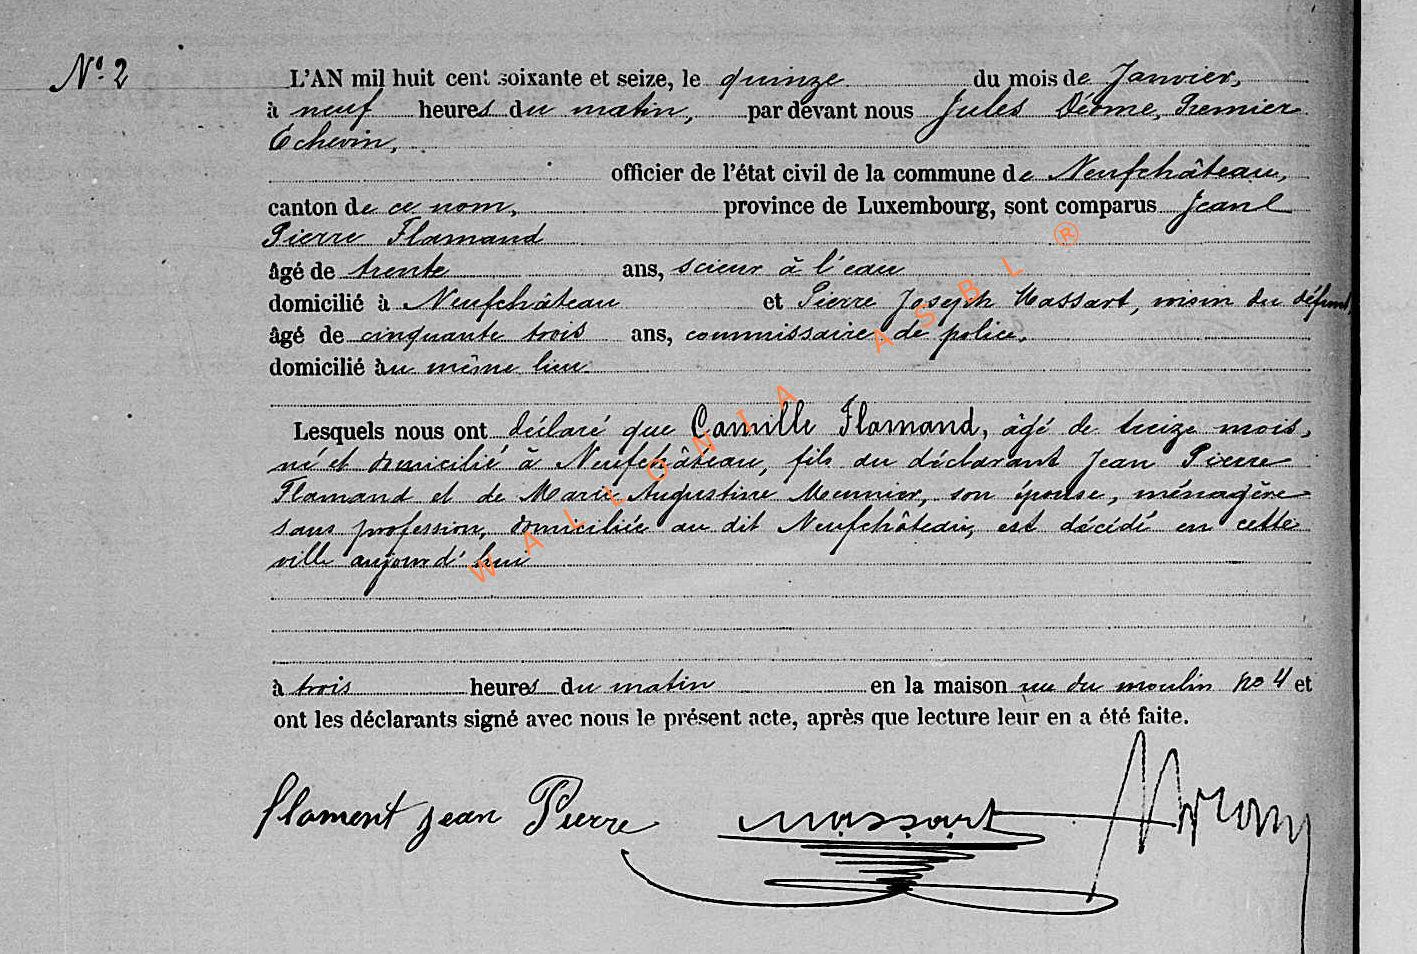 No. 2
L'AN mil huit cent soixante et seize, le quinze du mois de Janvier,
à neuf heures du matin, par devant nous Jules Déome, Premier
Echevin,
officier de l'état civil de la commune de Neufchâteau,
canton de ce nom, province de Luxembourg, sont comparus Jean
Pierre Flamand
âgé de trente ans, scieur à l'eau
domicilié à Neufchâteau et Pierre Joseph Massart, voisin du défunt,
âgé de cinquante trois ans, commissaire de police,
domicilié au même lieu
Lesquels nous ont déclaré que Camille Flamand, âgé de treize mois,
né et domicilié à Neufchâteau, fils du déclarant Jean Pierre
Flamand et de Marie Augustine Meunier, son épouse, ménagère
sans profession, domiciliée au dit Neufchâteau, est décédé en cette
ville aujourd'hui
à trois heures du matin en la maison rue du moulin no 4 et
ont les déclarants signé avec nous le présent acte, après que lecture leur en a été faite.
flament jean Pierre Massart
WALLONIA ASBL ®